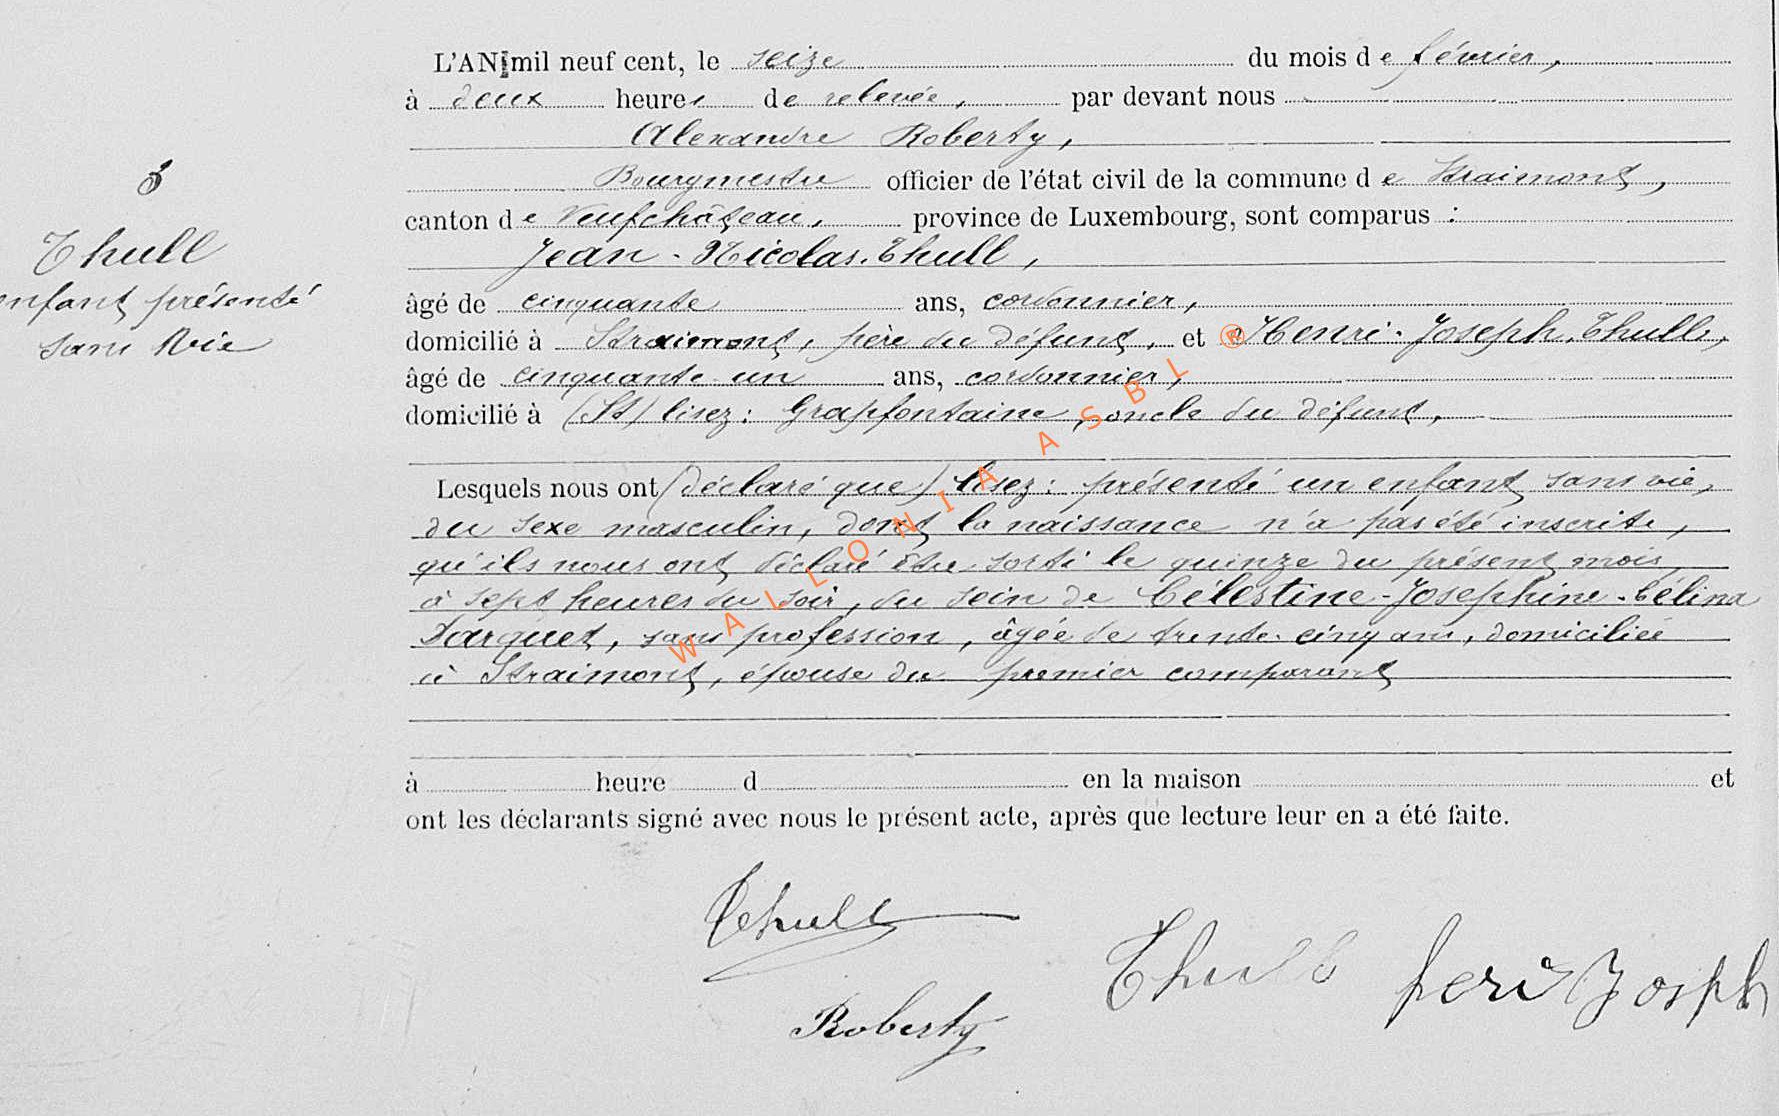 L'AN mil neuf cent, le seize du mois de février,
à deux heures de relevée, par devant nous
Alexandre Roberty,
Bourgmestre officier de l'état civil de la commune de Straimont,
canton de Neufchâteau, province de Luxembourg, sont comparus :
Jean-Nicolas Thull,
âgé de cinquante ans, cordonnier,
domicilié à Straimont, père du défunt, et Henri-Joseph Thull,
âgé de cinquante-un ans, cordonnier,
domicilié à (St) lisez: Grapfontaine, oncle du défunt,
Lesquels nous ont (déclaré que) lisez: présenté un enfant sans vie,
du sexe masculin, dont la naissance n'a pas été inscrite,
qu'ils nous ont déclaré être sorti le quinze du présent mois,
à sept heures du soir, du sein de Célestine-Joséphine-Célina
Darquet, sans profession, âgée de trente-cinq ans, domiciliée
à Straimont, épouse du premier comparant
à heure d en la maison et
ont les déclarants signé avec nous le présent acte, après que lecture leur en a été faite.
3
Thull
enfant présenté
sans vie
Thull
Thull henri Joseph
Roberty
® WALLONIA ASBL